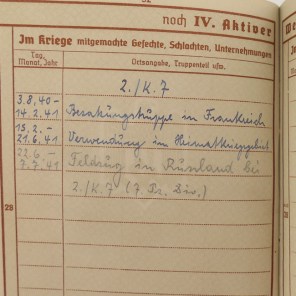 52
noch IV. Aktiver
Im Kriege mitgemachte Gefechte, Schlachten, Unternehmungen
Tag, Monat, Jahr
Ortsangabe, Truppenteil usw.
2./K. 7
3.8.40-
14.2.41 Besatzungstruppe in Frankreich
15.2.-
21.6.41 Verwendung im Heimatkriegsgebiet
22.6.-
7.7.41 Feldzug in Russland bei
2./K. 7 (7. Pz. Div.)
28